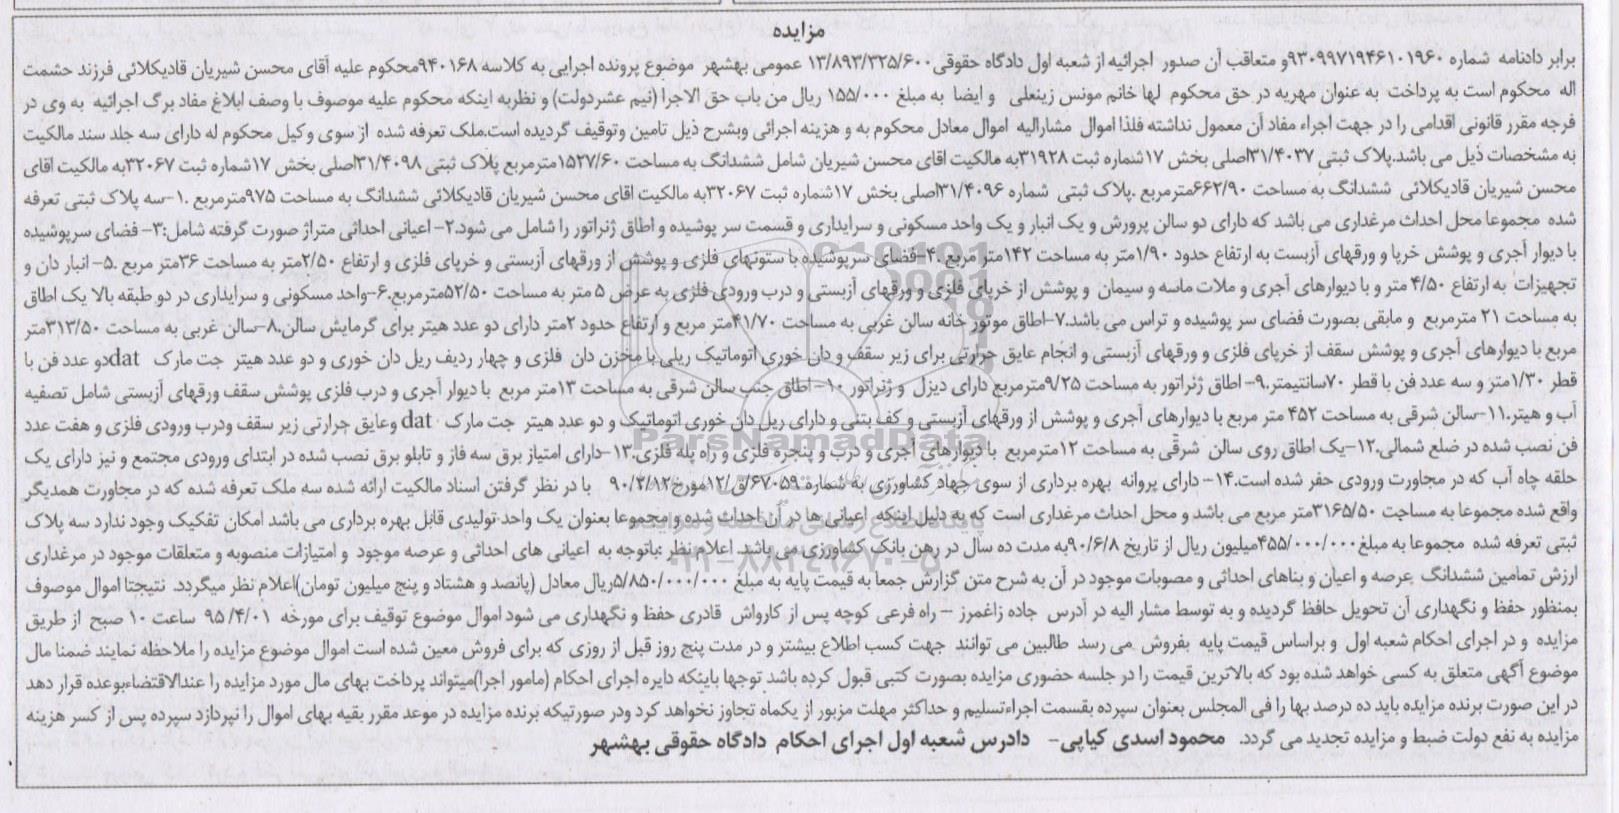 مزایده
برابر دادنامه شماره ۹۳۰۹۹۷۱۹۴۶۱۰۱۹۶۰و متعاقب آن صدور اجرائیه از شعبه اول دادگاه حقوقی ۱۳/۸۹۳/۳۲۵/۶۰۰ عمومی بهشهر موضوع پرونده اجرایی به کلاسه ۹۴۰۱۶۸محکوم علیه آقای محسن شیریان قادیکلائی فرزند حشمت
اله محکوم است به پرداخت به عنوان مهریه در حق محکوم لها خانم مونس زینعلی و ایضا به مبلغ ۱۵۵/۰۰۰ ریال من باب حق الاجرا (نیم عشردولت) و نظربه اینکه محکوم علیه موصوف با وصف ابلاغ مفاد برگ اجرائیه به وی در
فرجه مقرر قانونی اقدامی را در جهت اجراء مفاد آن معمول نداشته فلذا اموال مشارالیه اموال معادل محکوم به و هزینه اجرائی وبشرح ذیل تامین وتوقیف گردیده است.ملک تعرفه شده از سوی وکیل محکوم له دارای سه جلد سند مالکیت
به مشخصات ذیل می باشد.پلاک ثبتی ۳۱/۴۰۳۷اصلی بخش ۱۷شماره ثبت ۳۱۹۲۸به مالکیت اقای محسن شیریان شامل ششدانگ به مساحت ۱۵۲۷/۶۰مترمربع پلاک ثبتی ۳۱/۴۰۹۸اصلی بخش ۱۷شماره ثبت ۳۲۰۶۷به مالکیت اقای
محسن شیریان قادیکلائی ششدانگ به مساحت ۶۶۲/۹۰مترمربع .پلاک ثبتی شماره ۳۱/۴۰۹۶اصلی بخش ۱۷شماره ثبت ۳۲۰۶۷به مالکیت اقای محسن شیریان قادیکلائی ششدانگ به مساحت ۹۷۵مترمربع .۱-سه پلاک ثبتی تعرفه
شده مجموعا محل احداث مرغداری می باشد که دارای دو سالن پرورش و یک انبار و یک واحد مسکونی و سرایداری و قسمت سر پوشیده و اطاق ژنراتور را شامل می شود.۲- اعیانی احداثی متراژ صورت گرفته شامل:۳- فضای سرپوشیده
با دیوار آجری و پوشش خرپا و ورقهای آزبست به ارتفاع حدود ۱/۹۰متر به مساحت ۱۴۲متر مربع .۴-فضای سرپوشیده با ستونهای فلزی و پوشش از ورقهای آزبستی و خرپای فلزی و ارتفاع ۲/۵۰متر به مساحت ۳۶متر مربع .۵- انبار دان و
تجهیزات به ارتفاع ۴/۵۰ متر و با دیوارهای آجری و ملات ماسه و سیمان و پوشش از خرپای فلزی و ورقهای آزبستی و درب ورودی فلزی به عرض ۵ متر به مساحت ۵۲/۵۰مترمربع.۶-واحد مسکونی و سرایداری در دو طبقه بالا یک اطاق
به مساحت ۲۱ مترمربع و مابقی بصورت فضای سر پوشیده و تراس می باشد.۷-اطاق موتور خانه سالن غربی به مساحت ۴۱/۷۰متر مربع و ارتفاع حدود ۲متر دارای دو عدد هیتر برای گرمایش سالن.۸-سالن غربی به مساحت ۳۱۳/۵۰متر
مربع با دیوارهای آجری و پوشش سقف از خرپای فلزی و ورقهای آزبستی و انجام عایق حرارتی برای زیر سقف و دان خوری اتوماتیک ریلی با مخزن دان فلزی و چهار ردیف ریل دان خوری و دو عدد هیتر جت مارک datدو عدد فن با
قطر ۱/۳۰متر و سه عدد فن با قطر ۷۰سانتیمتر.۹- اطاق ژنراتور به مساحت ۹/۲۵مترمربع دارای دیزل و ژنراتور ۱۰- اطاق جنب سالن شرقی به مساحت ۱۳متر مربع با دیوار آجری و درب فلزی پوشش سقف ورقهای آزبستی شامل تصفیه
آب و هیتر.۱۱-سالن شرقی به مساحت ۴۵۲ متر مربع با دیوارهای آجری و پوشش از ورقهای آزبستی و کف بتنی و دارای ریل دان خوری اتوماتیک و دو عدد هیتر جت مارک dat وعایق حرارتی زیر سقف ودرب ورودی فلزی و هفت عدد
فن نصب شده در ضلع شمالی.۱۲-یک اطاق روی سالن شرقی به مساحت ۱۲مترمربع با دیوارهای آجری و درب و پنجره فلزی و راه پله فلزی.۱۳-دارای امتیاز برق سه فاز و تابلو برق نصب شده در ابتدای ورودی مجتمع و نیز دارای یک
حلقه چاه آب که در مجاورت ورودی حفر شده است.۱۴- دارای پروانه بهره برداری از سوی جهاد کشاورزی به شماره ۶۷۰۵۹/ق/۱۲مورخ۹۰/۲/۱۲ با در نظر گرفتن اسناد مالکیت ارائه شده سه ملک تعرفه شده که در مجاورت همدیگر
واقع شده مجموعا به مساحت ۳۱۶۵/۵۰متر مربع می باشد و محل احداث مرغداری است که به دلیل اینکه اعیانی ها در آن احداث شده و مجموعا بعنوان یک واحد تولیدی قابل بهره برداری می باشد امکان تفکیک وجود ندارد سه پلاک
ثبتی تعرفه شده مجموعا به مبلغ۴۵۵/۰۰۰/۰۰۰میلیون ریال از تاریخ ۹۰/۶/۸به مدت ده سال در رهن بانک کشاورزی می باشد. اعلام نظر :باتوجه به اعیانی های احداثی و عرصه موجود و امتیازات منصوبه و متعلقات موجود در مرغداری
ارزش تمامین ششدانگ عرصه و اعیان و بناهای احداثی و مصوبات موجود در آن به شرح متن گزارش جمعا به قیمت پایه به مبلغ ۵/۸۵۰/۰۰۰/۰۰۰ریال معادل (پانصد و هشتاد و پنج میلیون تومان)اعلام نظر میگردد. نتیجتا اموال موصوف
بمنظور حفظ و نگهداری آن تحویل حافظ گردیده و به توسط مشار الیه در آدرس جاده زاغمرز – راه فرعی کوچه پس از کارواش قادری حفظ و نگهداری می شود اموال موضوع توقیف برای مورخه ۹۵/۴/۰۱ ساعت ۱۰ صبح از طریق
مزایده و در اجرای احکام شعبه اول و براساس قیمت پایه بفروش می رسد طالبین می توانند جهت کسب اطلاع بیشتر و در مدت پنج روز قبل از روزی که برای فروش معین شده است اموال موضوع مزایده را ملاحظه نمایند ضمنا مال
موضوع آگهی متعلق به کسی خواهد شده بود که بالاترین قیمت را در جلسه حضوری مزایده بصورت کتبی قبول کرده باشد توجها باینکه دایره اجرای احکام (مامور اجرا)میتواند پرداخت بهای مال مورد مزایده را عندالاقتضاءبوعده قرار دهد
در این صورت برنده مزایده باید ده درصد بها را فی المجلس بعنوان سپرده بقسمت اجراءتسلیم و حداکثر مهلت مزبور از یکماه تجاوز نخواهد کرد ودر صورتیکه برنده مزایده در موعد مقرر بقیه بهای اموال را نپردازد سپرده پس از کسر هزینه
مزایده به نفع دولت ضبط و مزایده تجدید می گردد. محمود اسدی کیاپی- دادرس شعبه اول اجرای احکام دادگاه حقوقی بهشهر
ParsNamadData
۰۲۱-۸۸۳۴۹۶۷۰-۵